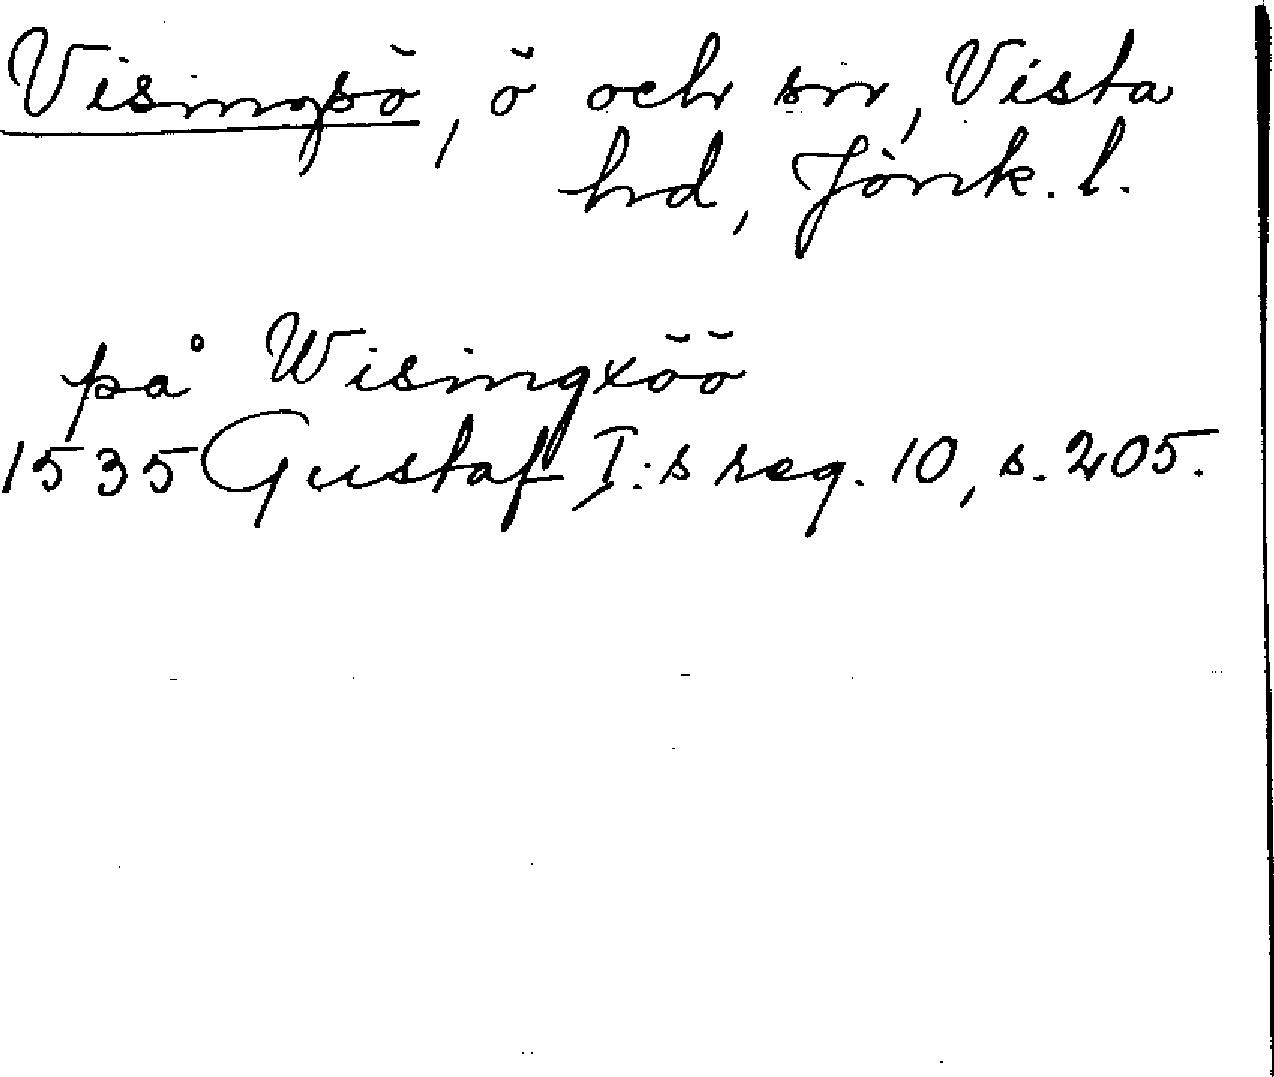 Visingsö, ö och sn, Vista
hd, Jönk. l.
på Wisingxöö
1535 Gustaf I:s reg. 10, s. 205.